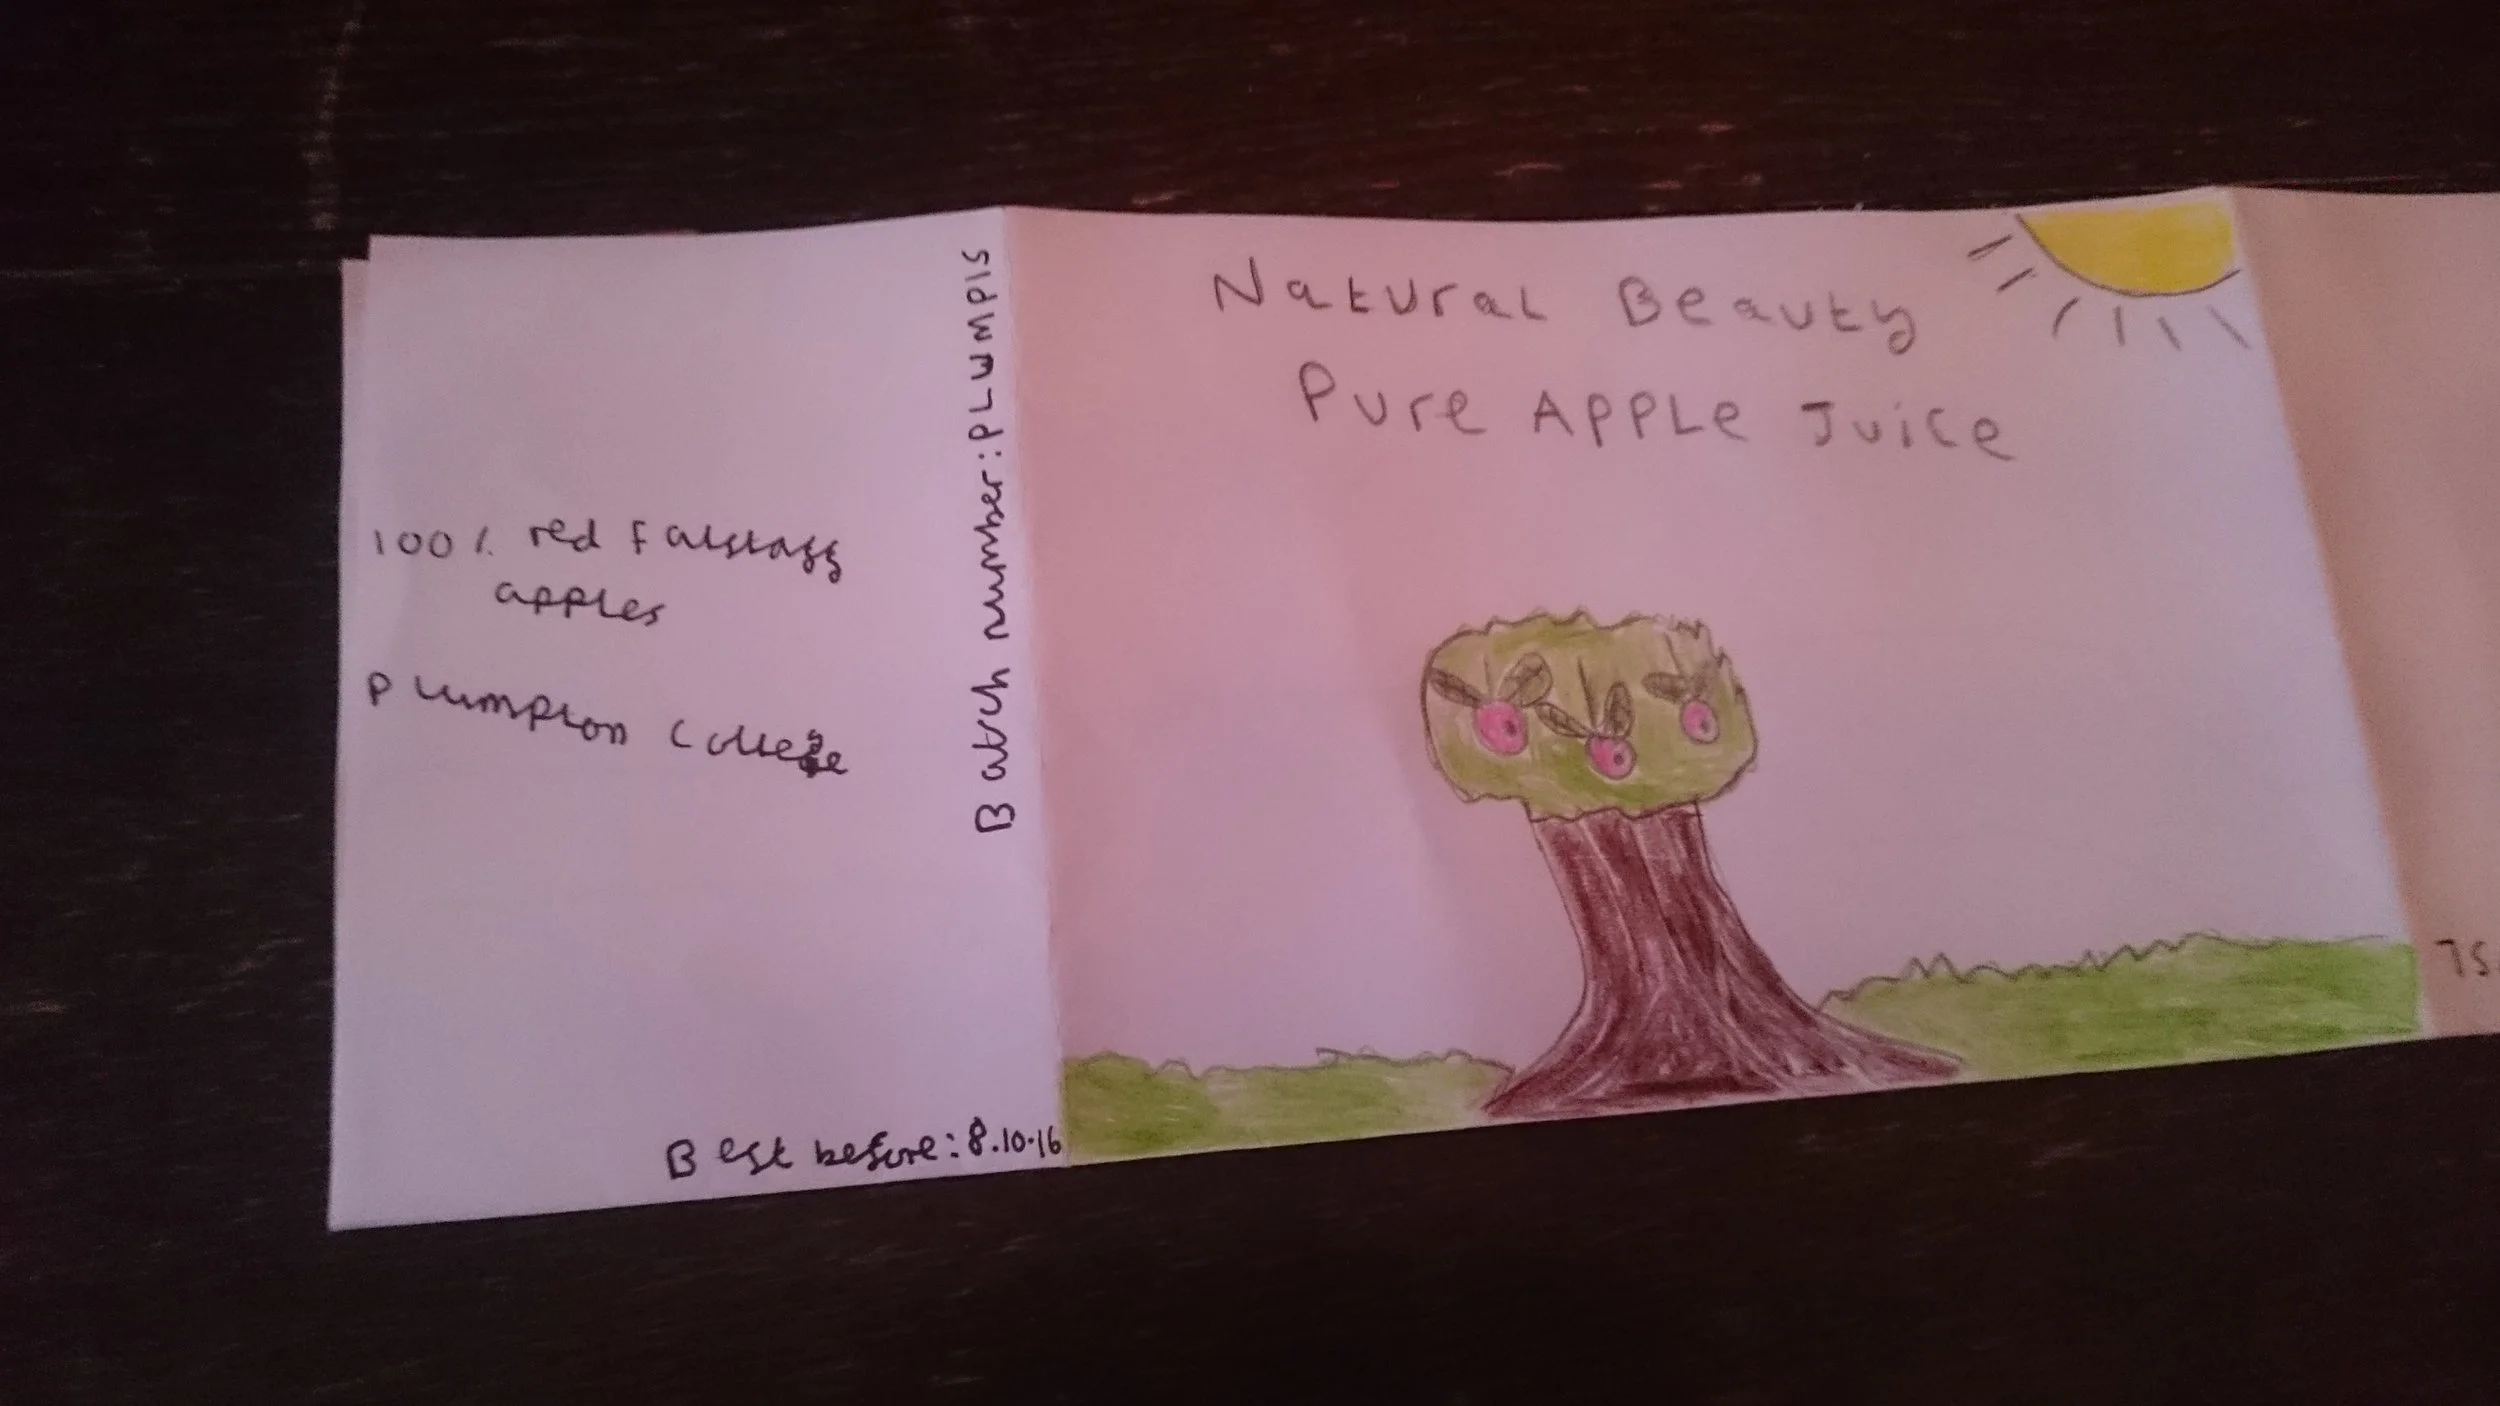 100% red Falstaff
apples
Plumpton College
Batch number: PLUMP15
Best before: 8.10.16
Natural Beauty
Pure APPLe Juice
75